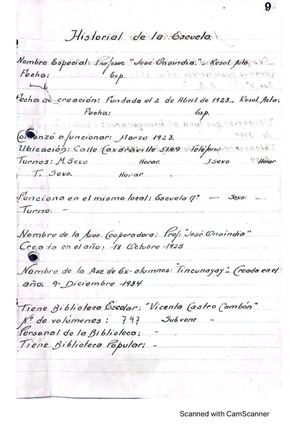 9
Historial de la Escuela
Nombre Especial: Profesor "José Onaindia".- Resol. Nº
Fecha: Exp.
Fecha de creación: Fundada el 2 de Abril de 1923.. Resol. Nº:
Fecha: Exp:
Comenzó a funcionar: Marzo 1923.
Ubicación: Calle 5749 Teléfono
Turnos: M. Sexo Horar. I. Sexo Horar
T. Sexo. Horar.
Funciona en el mismo local: Escuela nº — Sexo: -
Turno: -
Nombre de la Asoc. Cooperadora: Prof: "José Onaindia"
Creada en el año: 18 Octubre 1925
Nombre de la Aso. de Ex-alumnos: "Tincunayay" - Creada en el
año: 9- Diciembre 1934
Tiene Biblioteca Escolar: "Vicenta Castro Cambón"
Nº de volúmenes: 797 Subvenc -
Personal de la Biblioteca: -
Tiene Biblioteca Popular: -
Scanned with CamScanner